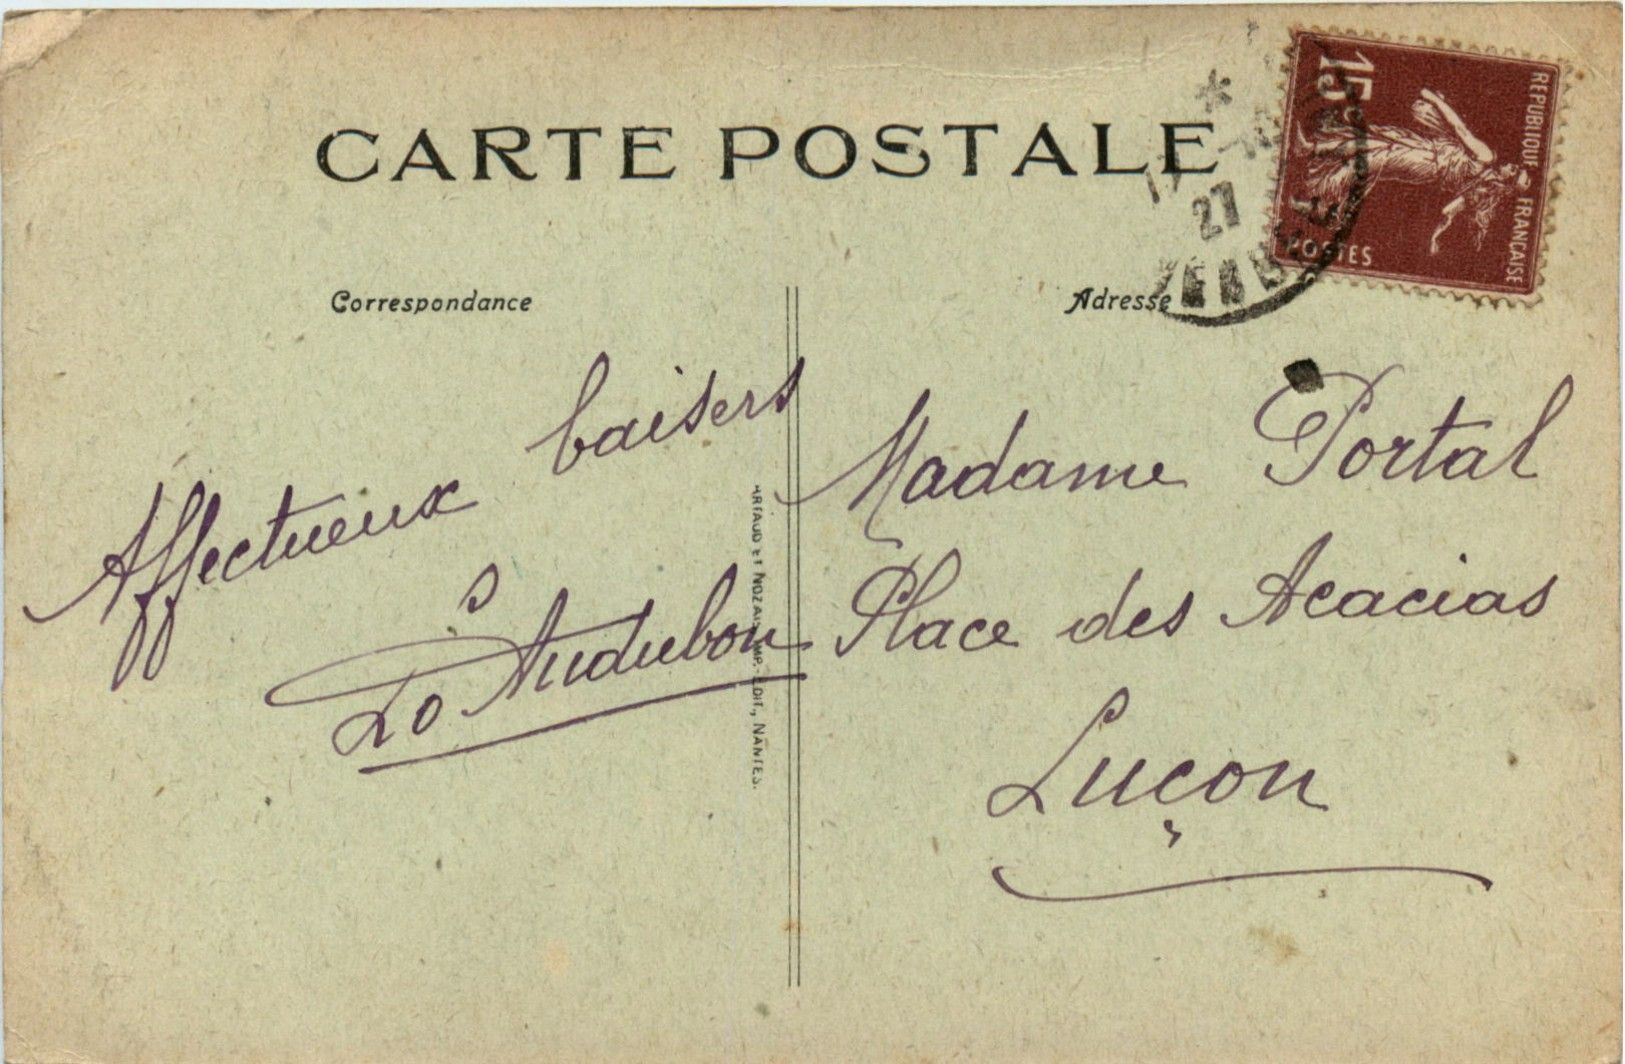 CARTE POSTALE
15c
REPUBLIQUE FRANÇAISE
POSTES
27
Correspondance
Adresse
Affectueux baisers
Audubon
Madame Portal
Place des Acacias
Luçon
ARTAUD ET NOZAIS, IMP.-EDIT., NANTES.